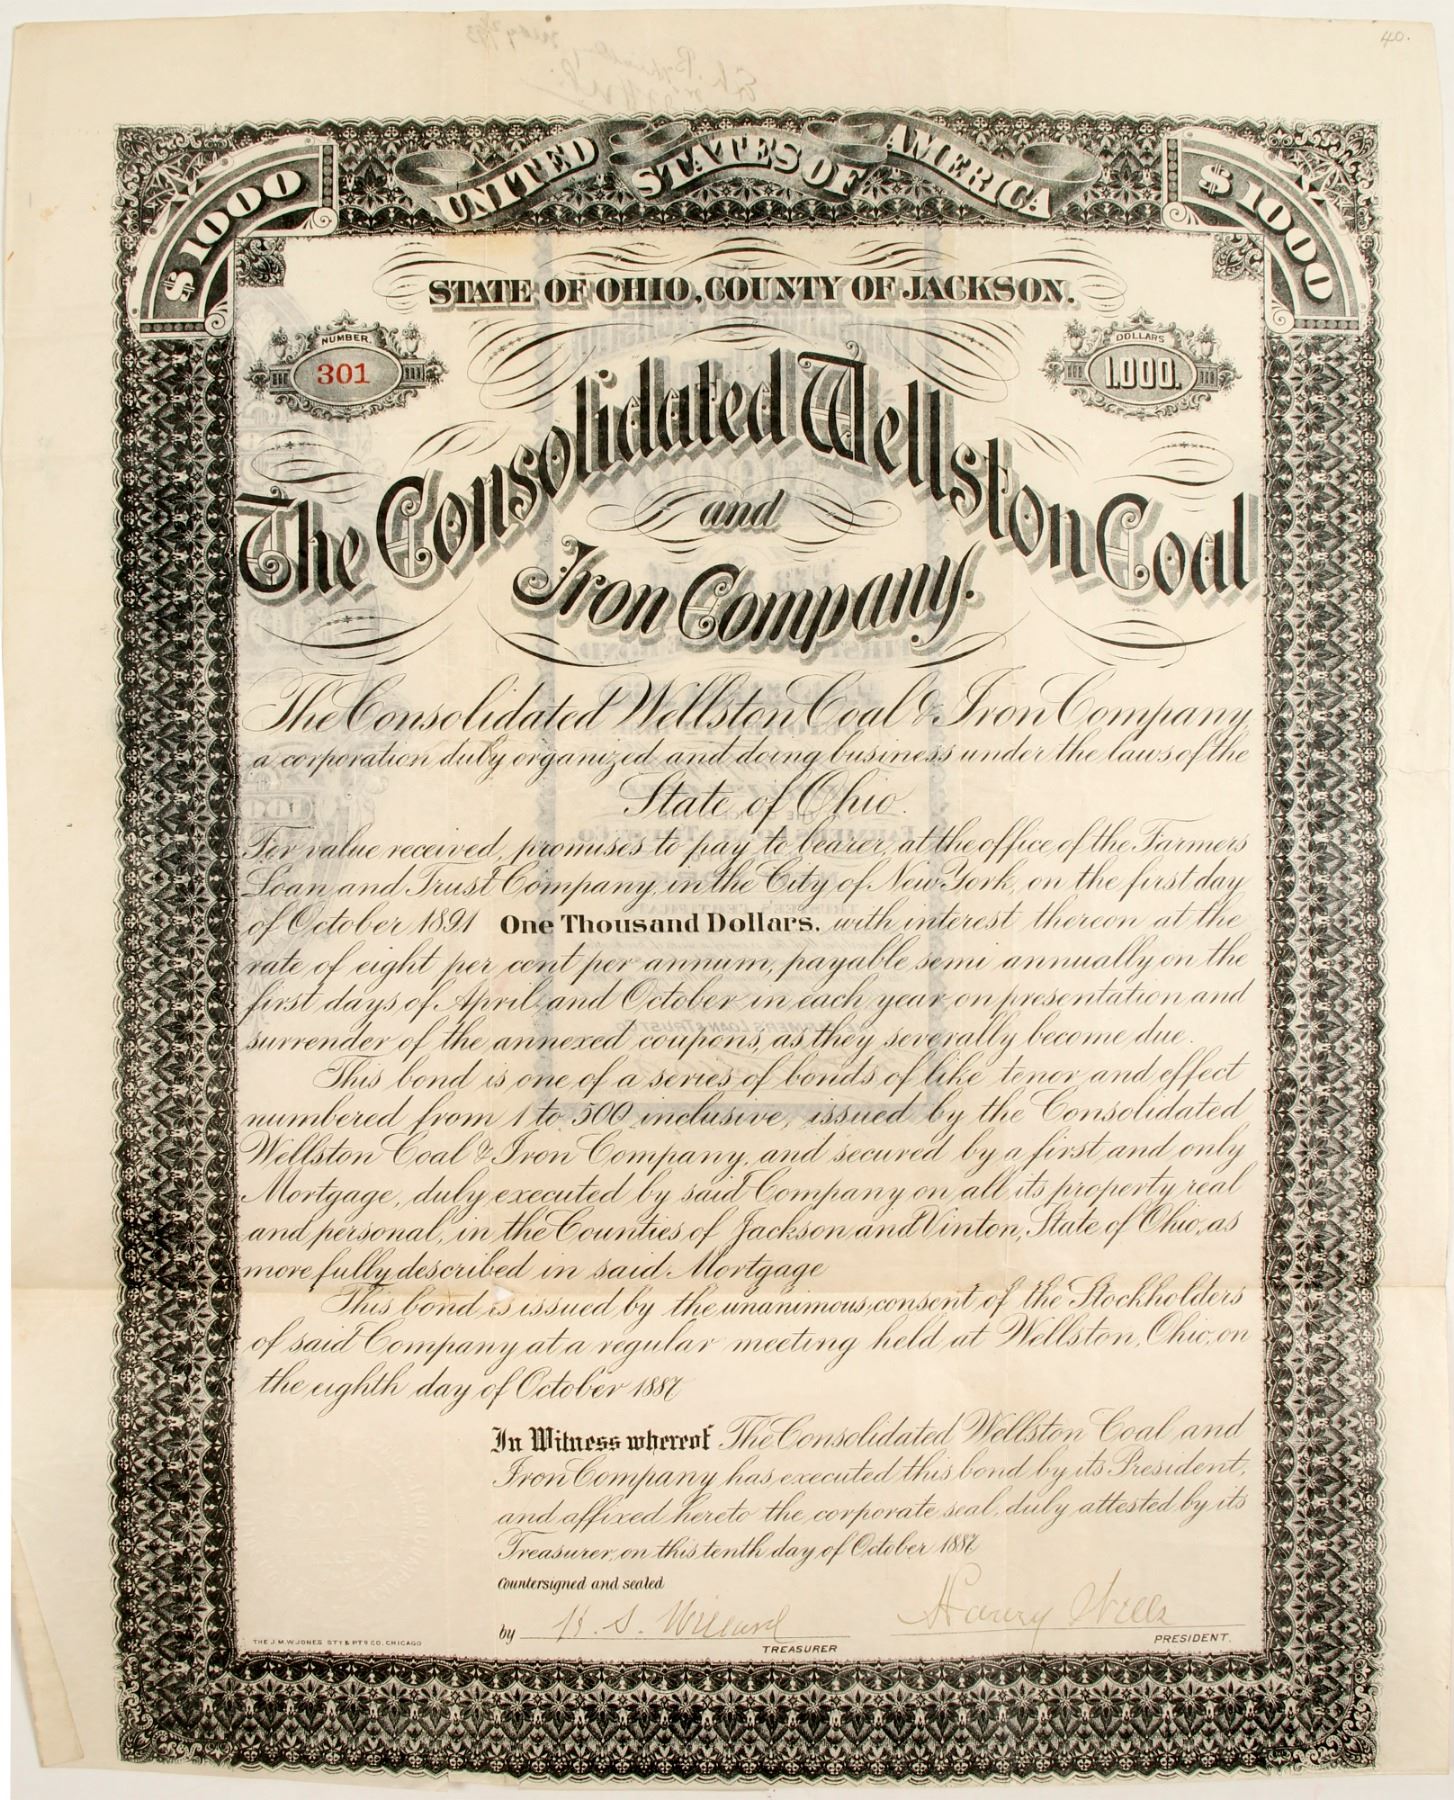 40.
UNITED STATES OF AMERICA
$1000
$1000
STATE OF OHIO, COUNTY OF JACKSON.
NUMBER.
301
DOLLARS
1,000.
The Consolidated Wellston Coal
and
Iron Company.
The Consolidated Wellston Coal & Iron Company,
a corporation duly organized and doing business under the laws of the
State of Ohio.
For value received, promises to pay to bearer, at the office of the Farmers
Loan and Trust Company, in the City of New York, on the first day
of October 1891 One Thousand Dollars, with interest thereon at the
rate of eight per cent per annum, payable semi annually on the
first days of April and October in each year on presentation and
surrender of the annexed coupons, as they severally become due.
This bond is one of a series of bonds of like tenor and effect
numbered from 1 to 500 inclusive, issued by the Consolidated
Wellston Coal & Iron Company, and secured by a first and only
Mortgage, duly executed by said Company on all its property real
and personal, in the Counties of Jackson and Vinton, State of Ohio, as
more fully described in said Mortgage
This bond is issued by the unanimous consent of the Stockholders
of said Company at a regular meeting held at Wellston, Ohio, on
the eighth day of October 1887
In Witness whereof The Consolidated Wellston Coal and
Iron Company has executed this bond by its President,
and affixed hereto the corporate seal, duly attested by its
Treasurer, on this tenth day of October 1887
Countersigned and sealed
by H. S. Willard
TREASURER
Harvey Wells
PRESIDENT.
THE J.M.W. JONES STY & PT'G CO. CHICAGO